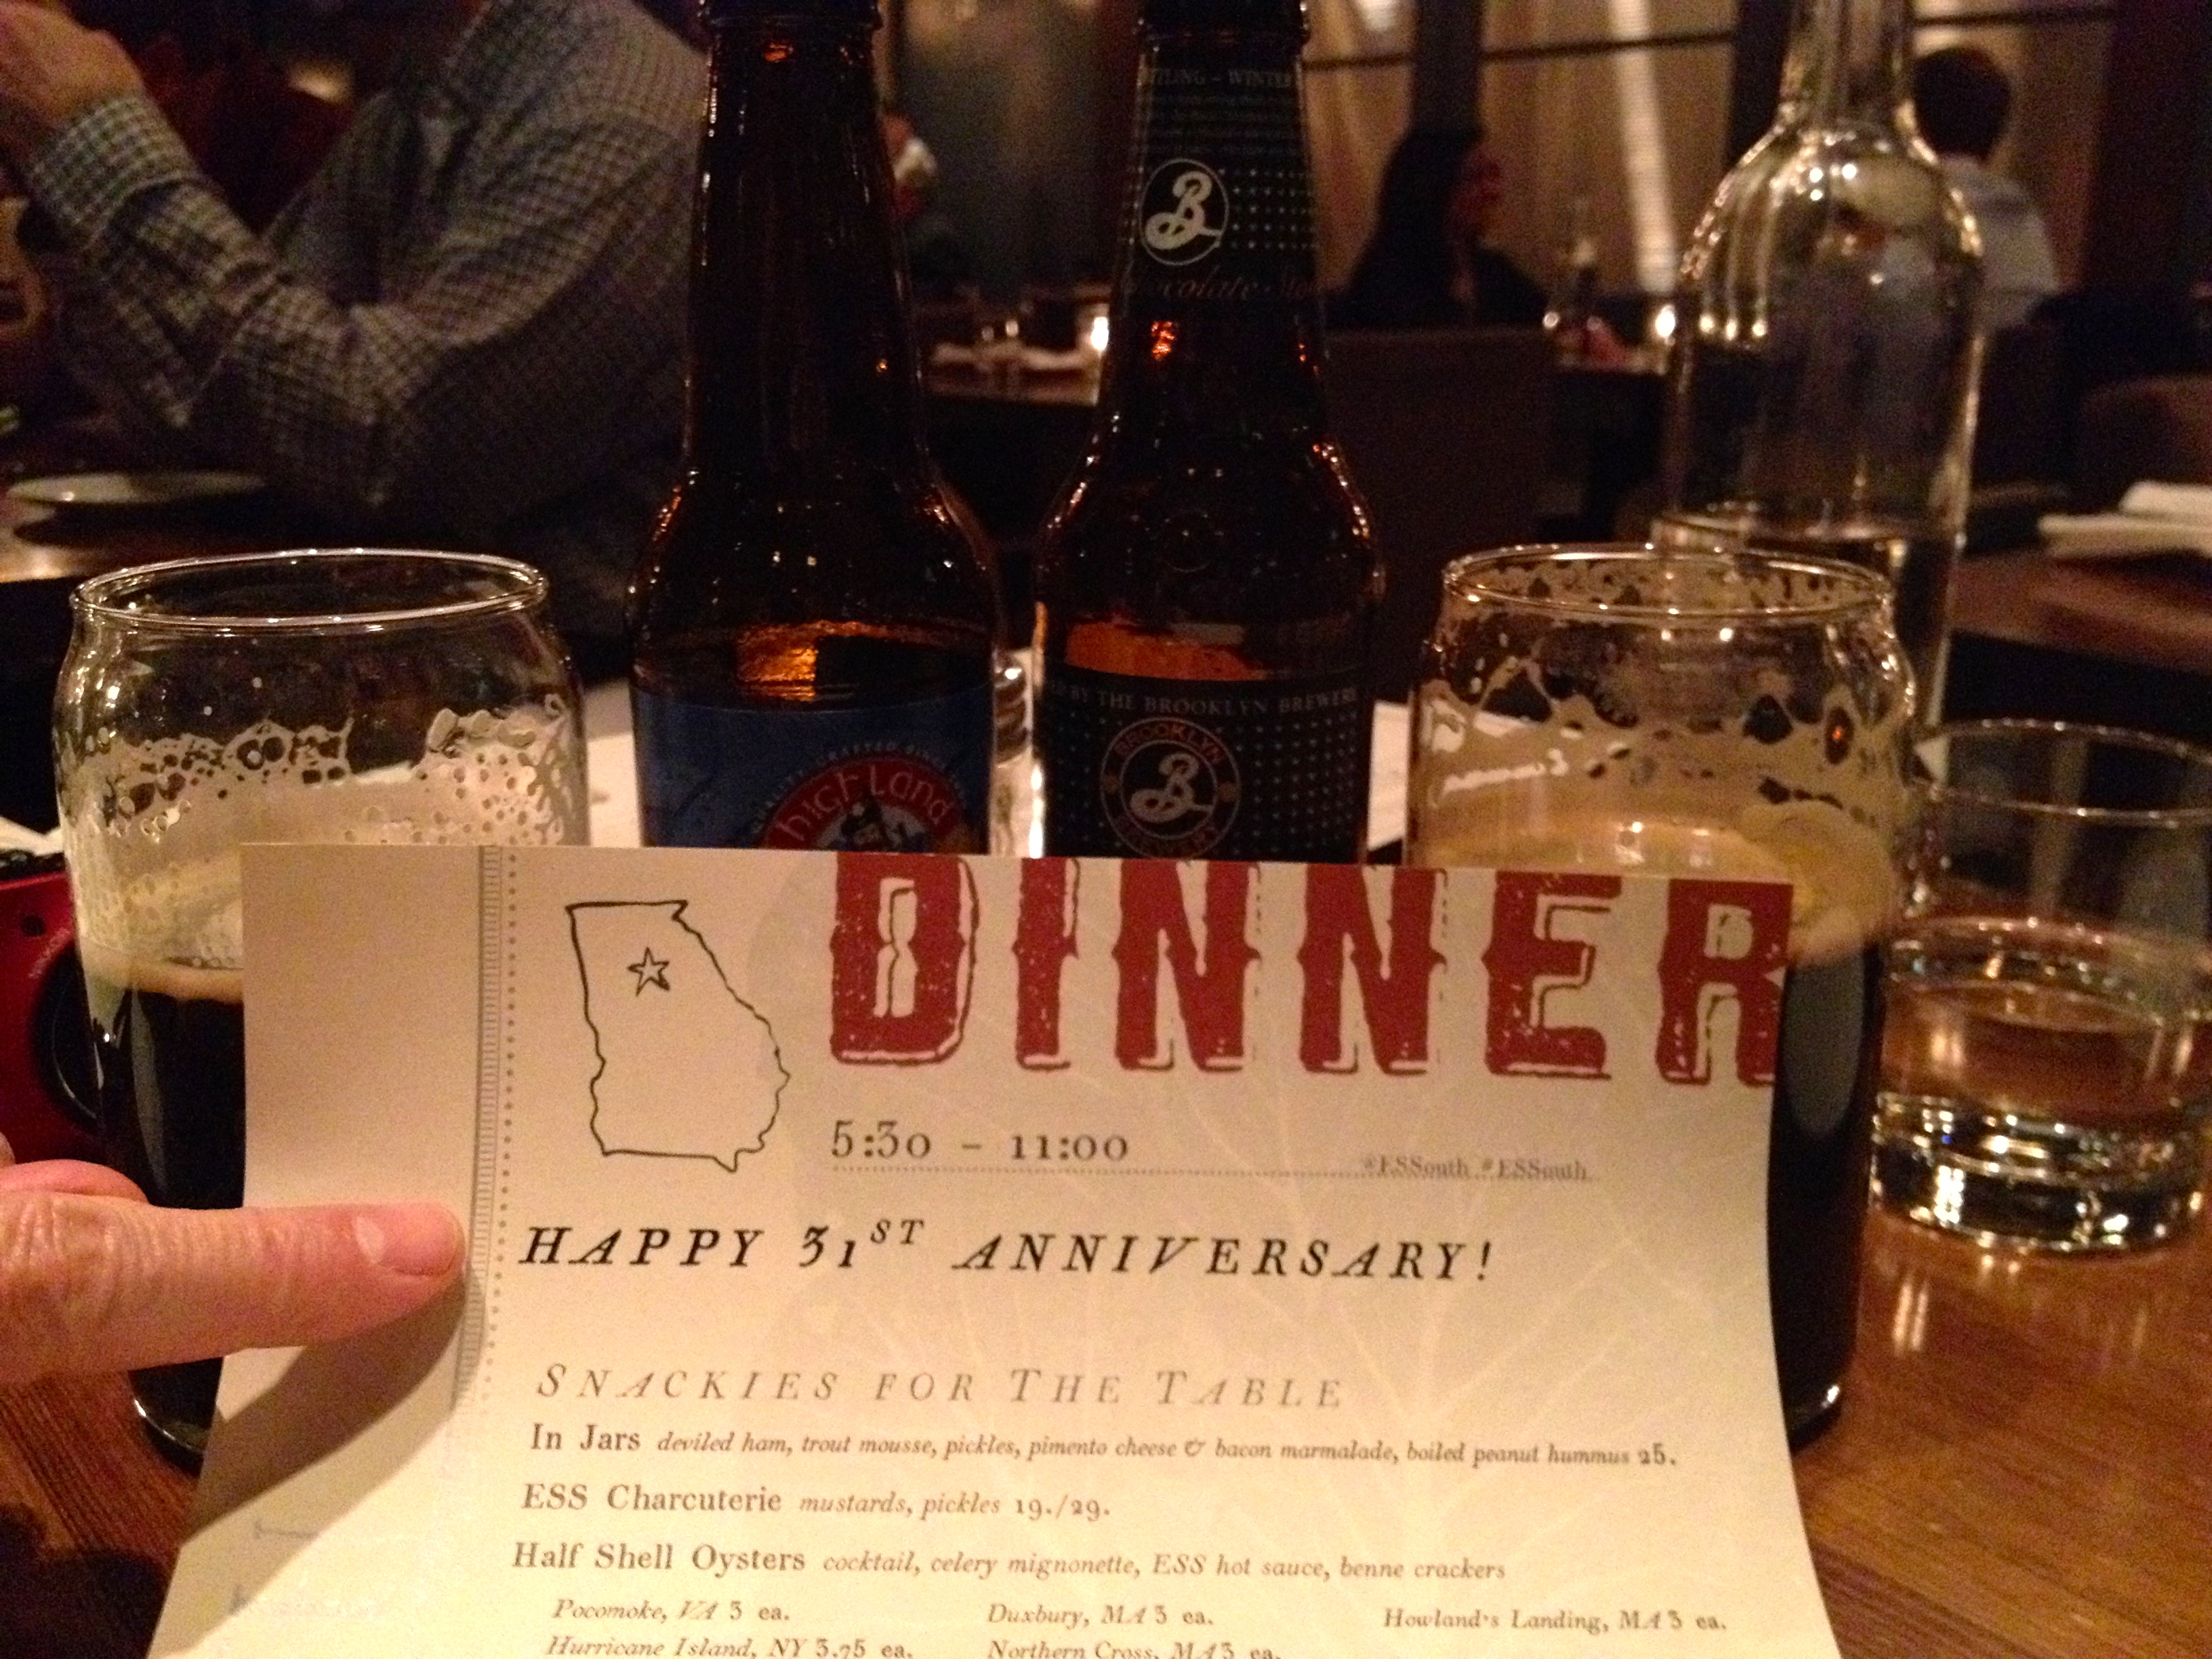 WINTER
B
BY THE BROOKLYN BREWERY
BROOKLYN
B
BREWERY
highland
DINNER
5:30 - 11:00
@ESSouth #ESSouth
HAPPY 31ST ANNIVERSARY!
SNACKIES FOR THE TABLE
In Jars deviled ham, trout mousse, pickles, pimento cheese & bacon marmalade, boiled peanut hummus 25.
ESS Charcuterie mustards, pickles 19./29.
Half Shell Oysters cocktail, celery mignonette, ESS hot sauce, benne crackers
Pocomoke, VA 3 ea. Duxbury, MA 3 ea. Howland's Landing, MA 3 ea.
Hurricane Island, NY 3.75 ea. Northern Cross, MA 3 ea.